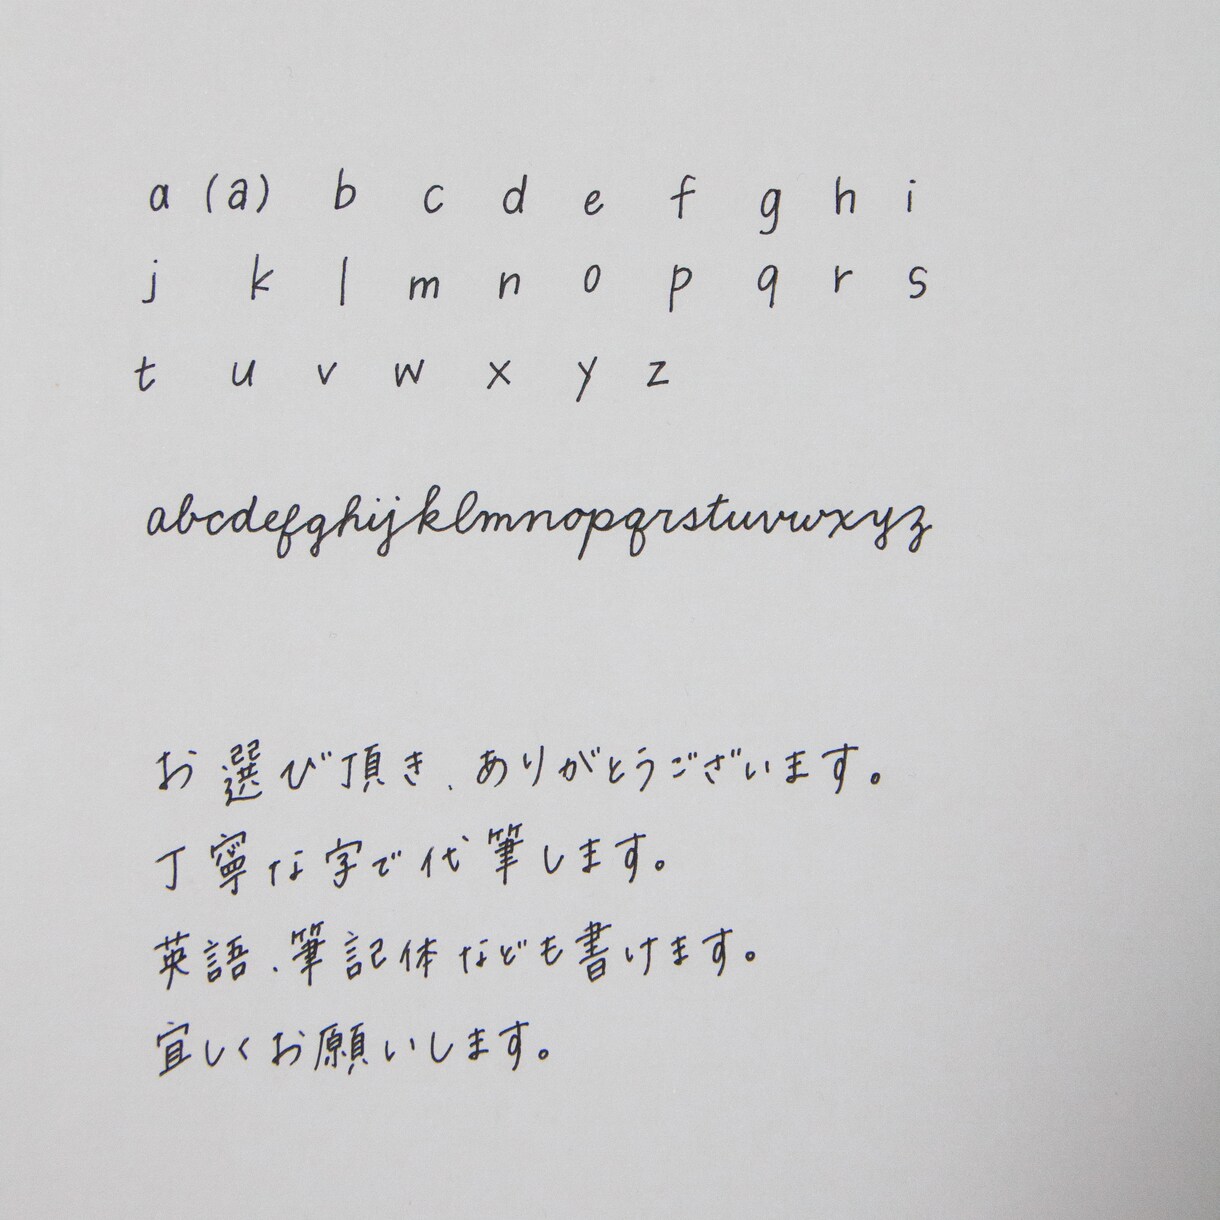 a (a) b c d e f g h i
j k l m n o p q r s
t u v w x y z
abcdefghijklmnopqrstuvwxyz
お選び頂き、ありがとうございます。
丁寧な字で代筆します。
英語、筆記体なども書けます。
宜しくお願いします。